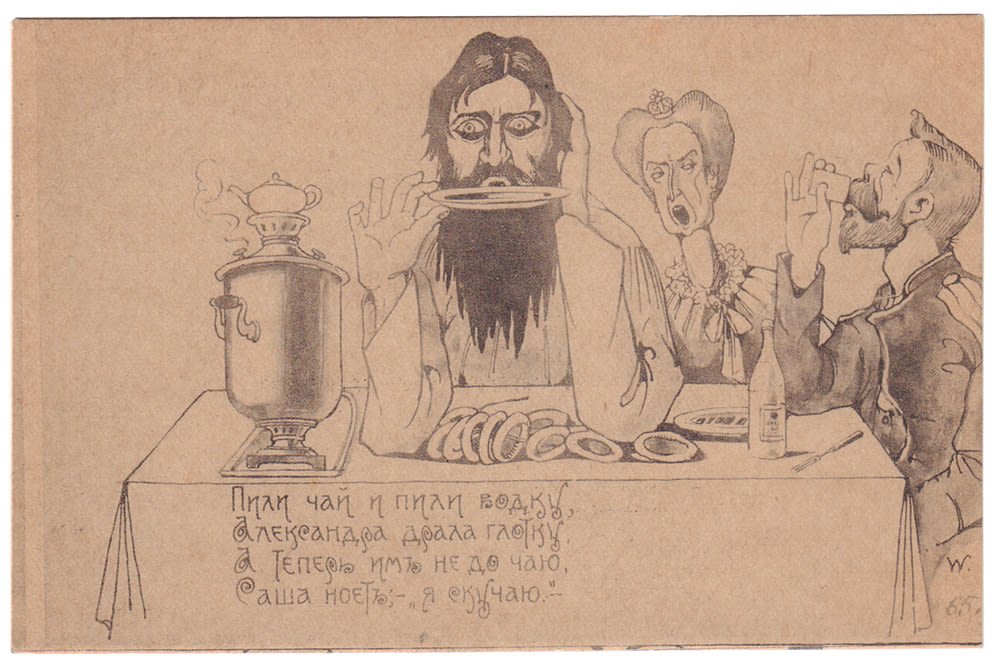 Пили чай и пили водку,
Александра драла глотку,
А теперь имъ не до чаю,
Саша ноетъ;-„я скучаю."-
W.
65.